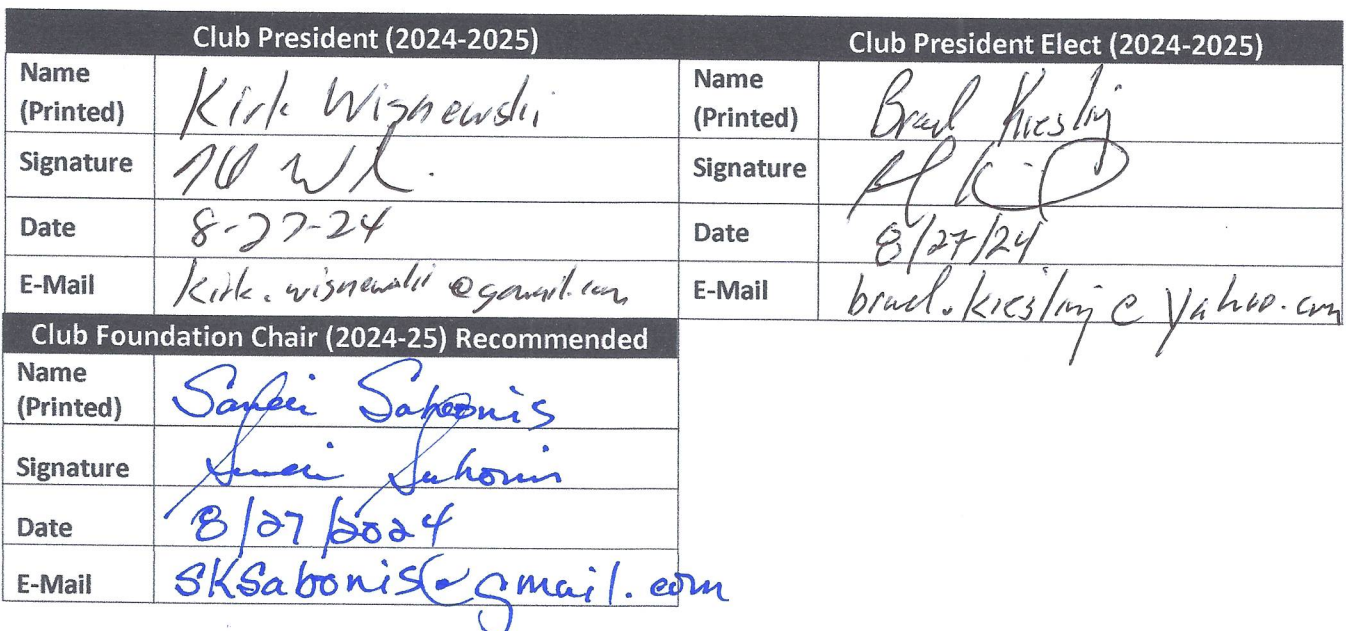 Club President (2024-2025)
Name
(Printed)
Kirk Wisnewski
Signature
Date
8-27-24
E-Mail
kirk.wisnewski@gmail.com
Club President Elect (2024-2025)
Name
(Printed)
Brad Kiesling
Signature
Date
8/27/24
E-Mail
brad.kiesling@yahoo.com
Club Foundation Chair (2024-25) Recommended
Name
(Printed)
Sabonis
Signature
Date
8/27/2024
E-Mail
SKSabonis@gmail.com